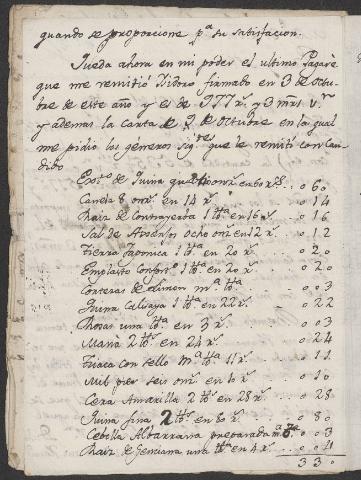 quando se proporcione p.ª su satisfacion.
Queda ahora en mi poder el ultimo Pagarè
que me remitió Isidoro firmado en 3 de Octu-
bre de este año y es de 977 r.s y 3 mrs v.n
y ademas la Carta de 9 de octubre en la qual
me pidió los generos sig.tes que le remití con Can-
dido
de Quina quatro onz.s en 60 r.s 060
Canela 8 onz.s en 14 r.s 014
Raiz de Contrayerba 1 lb.ª en 16 r.s 016
Sal de ocho onz.s en 12 r.s 012
Tierra Japonica 1 lb.ª en 20 r.s 020
Emplasto 1 lb.ª en 20 r.s 020
Cortezas de Limon m.ª lb.ª 003
Quina Calisaya 1 lb.ª en 22 r.s 022
Rosas una lb.ª en 3 r.s 003
Maná 2 lb.s en 24 r.s 024
Triaca con sello m.ª lb.ª 11 r.s 011
Mil pies seis onz.s en 10 r.s 010
Cera Amarilla 2 lb.s en 28 r.s 028
Quina fina 2 lb.s en 80 r.s 080
Cebolla Albarrana preparada m.ª lb.ª 003
Raiz de Genciana una lb.ª en 4 r.s 004
330